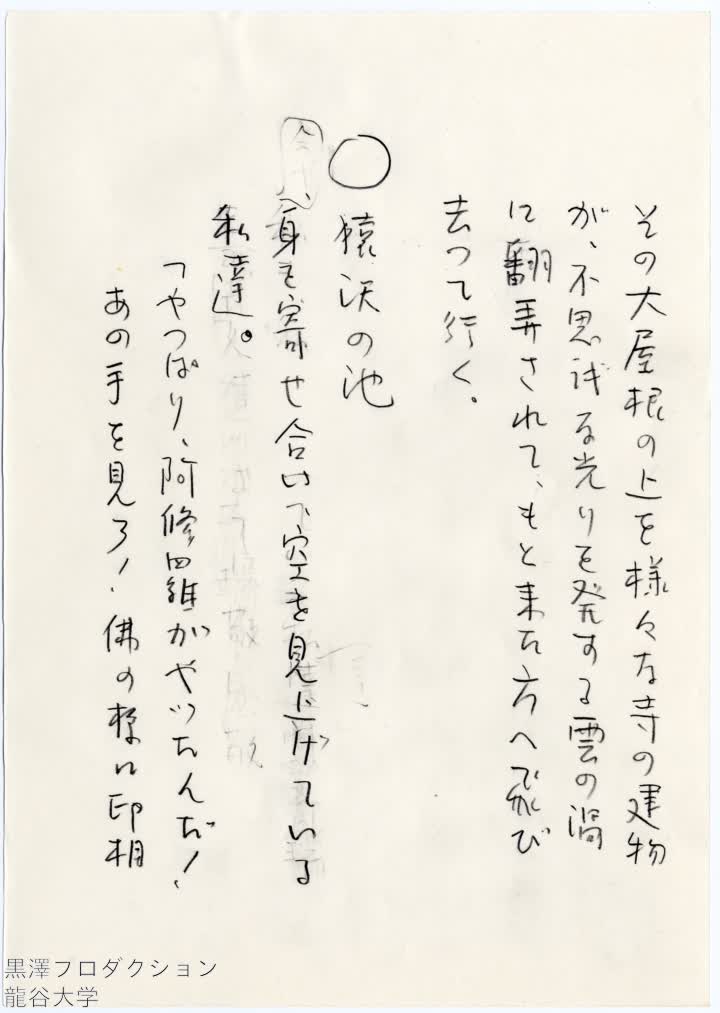 その大屋根の上を様々な寺の建物
が、不思議な光りを発する雲の渦
に翻弄されて、もと来た方へ飛び
去って行く。
○
猿沢の池
身を寄せ合い、空を見上げている
私達。
「やっぱり、阿修羅がやったんだ！
あの手を見ろ！佛の様に印相
黒澤プロダクション
龍谷大学